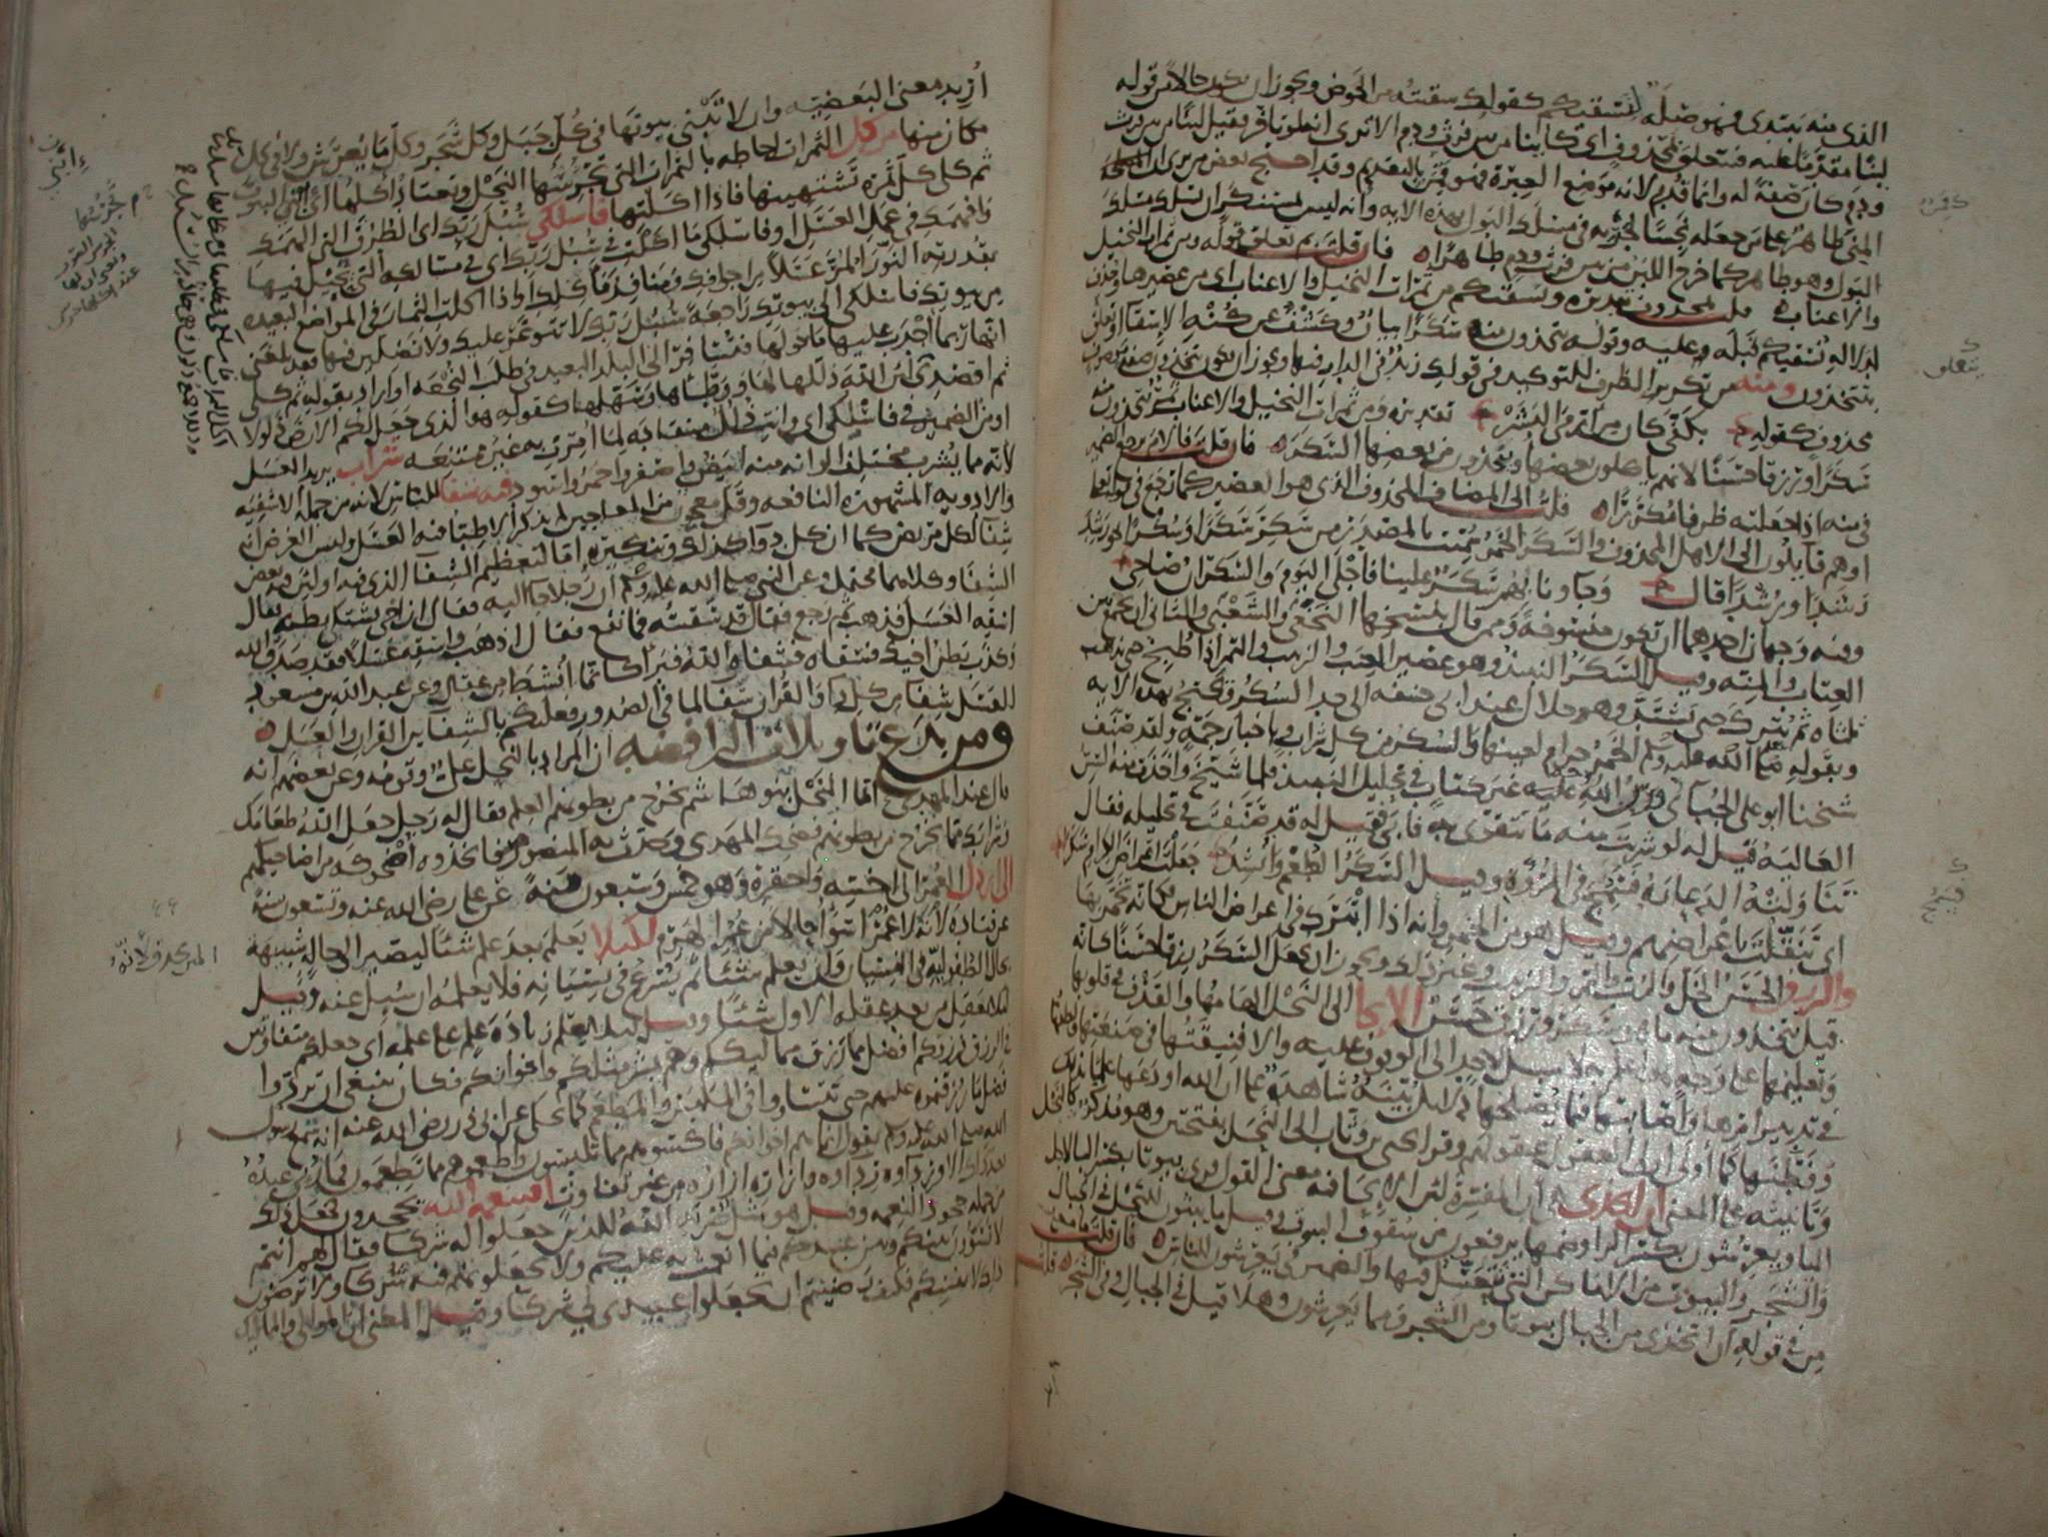 الذى منه يبتدى فهو صلة لنسقيكم كقولك سقيته من الحوض ويجوز ان يكون حالا من قوله
لبنا مقدما عليه فيتعلق بمحذوف اى كاينا من بين فرث ودم الا ترى انه لو تاخر فقيل لبنا من بين فرث
ودم كان صفة له وانما قدم لانه موضع العبرة فهو قمن بالتقديم وقد احتج بعض من يرى ان
المنى طاهر على من جعله نجسا لجريه فى مسلك البول بهذه الايه وانه ليس بمستنكر ان يسلك مسلك
البول وهو طاهر كما خرج اللبن من بين فرث ودم طاهرا فان قلت بم تعلق قوله ومن ثمرات النخيل
والاعناب قلت بمحذوف تقديره ونسقيكم من ثمرات النخيل والاعناب اى من عصيرها وحذف
لدلالة نسقيكم قبله عليه وقوله تتخذون منه سكرا بيان وكشف عن كنه الاسقا او يتعلق
بتتخذون ومنه من تكرير الظرف للتوكيد فى قولك زيد فى الدار فيها ويجوز ان يكون تتخذون صفة موصوف
محذوف كقوله بكفى كان من ارمى البشر تقديره ومن ثمرات النخيل والاعناب ثمر تتخذون منه
سكرا ورزقا حسنا لانهم ياكلون بعضها ويتخذون من بعضها السكر فان قلت فالام يرجع الضمير
فى منه اذا جعلته ظرفا مكررا قلت الى المضاف المحذوف الذى هو العصير كما رجع فى قوله تعالى
او هم قايلون الى الاهل المحذوف والسكر الخمر سميت بالمصدر من سكر سكرا وسكرا نحو رشد
رشدا ورشدا قال وجاونا بهم سكر علينا فاجلى اليوم والسكران صاحى
وفيه وجهان احدهما ان تكون منسوخة وممن قال بنسخها النخعى والشعبى والثانى ان يجمع بين
العتاب والمنه وقيل السكر النبيذ وهو عصير العنب والزبيب والتمر اذا طبخ حتى يذهب
ثلثاه ثم يترك حتى يشتد وهو حلال عند ابى حنيفه الى حد السكر ويحتج بهذه الايه
وبقوله صلى الله عليه وسلم الخمر حرام لعينها والسكر من كل شراب وباخبار جمة ولقد صنف
شيخنا ابو على الجبائى رحمة الله عليه غير كتاب فى تحليل النبيذ فلما شيخ واخذت منه السن
العاليه قيل له لو شربت منه ما تتقوى به فابى فقيل له قد صنفت فى تحليله فقال
تناولته الدعارة فسمج فى المروه وقيل السكر الطعم وانشد جعلت اعراض الكرام سكرا
اى تنقلت باعراضهم وقيل هو من الخمر وانه اذا ابترك فى اعراض الناس فكانه تخمر بها
والرزق الحسن الخل والرب والتمر والزبيب وغير ذلك ويجوز ان يجعل السكر رزقا حسنا كانه
قيل تتخذون منه ما هو سكر ورزق حسن الايحا الى النحل الهامها والقذف فى قلوبها
وتعليمها على وجه هو اعلم به لا سبيل لاحد الى الوقوف عليه والا فنيقتها فى صنعتها ولطفها
فى تدبير امرها واصابتها فيما يصلحها دلايل بينة شاهدة على ان الله اودعها علما بذلك
وفطنها كما اولى اولى العقول عقولهم وقرا يحيى بن وثاب الى النحل بفتحتين وهو مذكر كالنخل
وتانيثه على المعنى ان اتخذى هى ان المفسرة لان الايحا فيه معنى القول وقرى بيوتا بكسر البا لاجل
اليا ويعرشون بكسر الرا وضمها يرفعون من سقوف البيوت وقيل ما يبنون للنحل فى الجبال
والشجر والبيوت من الاماكن التى تتعسل فيها والضمير فى يعرشون للناس فان قلت ما معنى
من فى قوله ان اتخذى من الجبال بيوتا ومن الشجر ومما يعرشون وهلا قيل فى الجبال وفى الشجر قلت
اريد معنى البعضيه وان لا تبنى بيوتها فى كل جبل وكل شجر وكل ما يعرش ولا فى كل
مكان منها من كل الثمرات احاطه بالثمرات التى تجرسها النحل وتعتاد اكلها اى ابنى البيوت
ثم كلى كل ثمرة تشتهينها فاذا اكلتها فاسلكى سبل ربك اى الطرق التى الهمك
وافهمك فى عمل العسل او فاسلكى ما اكلت فى سبل ربك اى فى مسالكه التى يحيل فيها
بقدرته النور المر عسلا من اجوافك ومنافذ ماكلك او اذا اكلت الثمار فى المواضع البعيده
من بيوتك فاسلكى الى بيوتك راجعة سبل ربك لا تتوعر عليك ولا تضلين فيها فقد بلغنى
انها ربما اجدب عليها ما حولها فتسافر الى البلد البعيد فى طلب النجعه او اراد بقوله ثم كلى
ثم اقصدى اكل الثمرات فاسلكى فى طلبها فى مظانها سبل ربك ذللا جمع ذلول وهى حال من السبل
لان الله ذللها لها ووطاها وسهلها كقوله هو الذى جعل لكم الارض ذلولا
او من الضمير فى فاسلكى اى وانت ذلل منقادة لما امرت به غير ممتنعه شراب يريد العسل
لانه مما يشرب مختلف الوانه منه ابيض واصفر واحمر واسود فيه شفا للناس لانه من جملة الاشفيه
والادويه المشهوره النافعه وقل معجون من المعاجين لم يذكر الاطبا فيه العسل وليس الغرض انه
شفا لكل مريض كما ان كل دوا كذلك وتنكيره اما لتعظيم الشفا الذى فيه او لان فيه بعض
الشفا وكلاهما محتمل وعن النبى صلى الله عليه وسلم ان رجلا جا اليه فقال ان اخى يشتكى بطنه فقال
اسقه العسل فذهب ثم رجع فقال قد سقيته فما نفع فقال اذهب واسقه عسلا فقد صدق الله
وكذب بطن اخيك فسقاه فشفاه الله فبرا كانما انشط من عقال وعن عبد الله بن مسعود
العسل شفا من كل دا والقران شفا لما فى الصدور فعليكم بالشفاين القران والعسل
ومن بدع تاويلات الرافضه ان المراد بالنحل على وقومه وعن بعضهم انه
قال عند المهدى انما النحل بنو هاشم يخرج من بطونهم العلم فقال له رجل جعل الله طعامك
وشرابك مما يخرج من بطونهم فضحك المهدى وحدث به المنصور فاتخذوه اضحوكة من اضاحيكهم
الى ارذل العمر الى اخسه واحقره وهو خمس وسبعون سنة عن على رضى الله عنه وتسعون سنة
عن قتاده لانه لا عمر اسوا حالا من عمر الهرم لكيلا يعلم بعد علم شيئا ليصير الى حالة شبيهة
بحال الطفوليه فى النسيان وان يعلم شيئا ثم يسرع فى نسيانه فلا يعلمه ان سيل عنه وقيل
لئلا يعقل من بعد عقله الاول شيئا وقيل ليلا يعلم زيادة علم على علمه اى جعلكم متفاوتين
فى الرزق فرزقكم افضل مما رزق مماليككم وهم بشر مثلكم واخوانكم فكان ينبغى ان تردوا
فضل ما رزقتموه عليهم حتى تتساووا فى الملبس والمطعم كما يحكى عن ابى ذر رضى الله عنه انه سمع رسول
الله صلى الله عليه وسلم يقول انما هم اخوانكم فاكسوهم مما تلبسون واطعموهم مما تطعمون فما رئى عبده
بعد ذلك الا ورداوه رداوه وازاره ازاره من غير تفاوت افبنعمه الله يجحدون فجعل ذلك
من جملة جحود النعمه وقيل هو مثل ضربه الله للذين جعلوا له شركا فقال لهم انتم
لا تسوون بينكم وبين عبيدكم فيما انعمت به عليكم ولا تجعلونهم فيه شركا ولا ترضون
ذلك لانفسكم فكيف رضيتم ان تجعلوا عبيدى لى شركا وقيل المعنى ان الموالى والمماليك